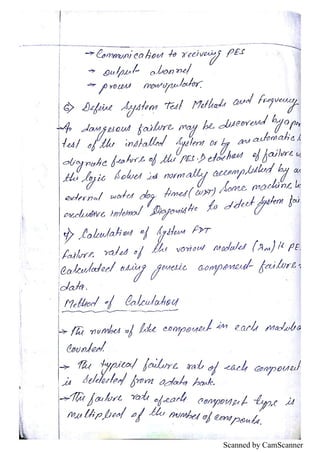 → Communication to receiving PES
→ output channel
→ process manupulator.
6) Define System Test Methods and Frequency
→ A dangerous failure may be discovered by a
test of the installed system or by an automatic
diagnostic feature of the PES. Detection of failure
the logic solver is normally accomplished by a
external watch dog times (WDT) Some machine
exclusive internal Diagnostic to detect system fai
7) Calculation of System FDT
failure rates of the various modules (λm) is PE
Calculated using generic component failure
data.
Method of Calculation
→ The number of like component in each module
Counted.
→ The typical failure rate of each component
is selected from a data bank.
→ The failure rate of each component type is
multiplied of the number of components.
Scanned by CamScanner